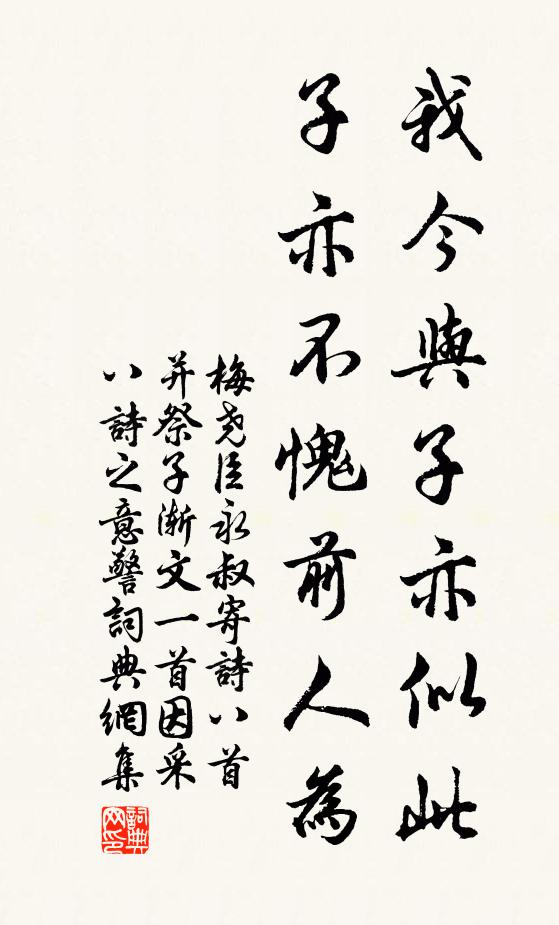 我今與子亦似此
子亦不愧前人為
梅堯臣永叔寄詩八首
并祭子漸文一首因采
八詩之意警詞典網集
詞典
网印